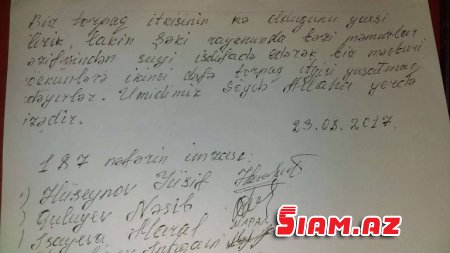 Biz torpaq itkisinin nə olduğunu yaxşı
bilirik, lakin Şəki rayonunda bəzi məmurlar
vəzifəsindən sui isdifadə edərək bir məcburi
köçkünlərə ikinci dəfə torpaq itgisi yaşatmaq
istəyirlər. Ümidimiz Göydə Allaha yerdə
sizədir.
23.08.2017.
187 nəfərin imzası:
1) Hüseynov Yusif
) Quluyev Nəsib
) İsayeva Maral
SİAM.AZ